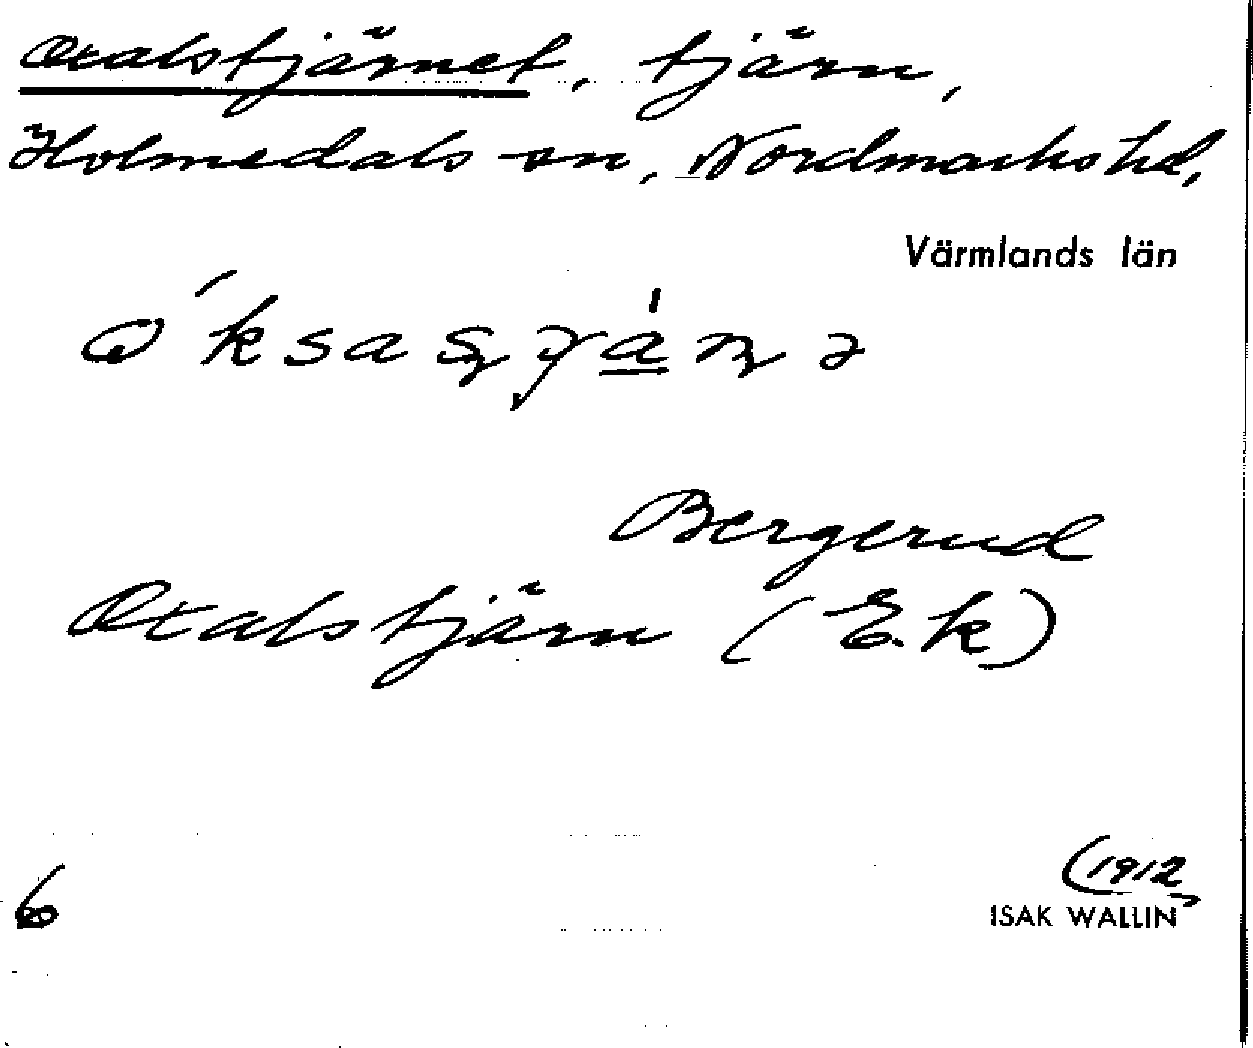 Oxalstjärnet, tjärn,
Holmedals sn, Nordmarks hd,
Värmlands län
Bergerud
Oxalstjärn (E.k)
(1912)
6
ISAK WALLIN